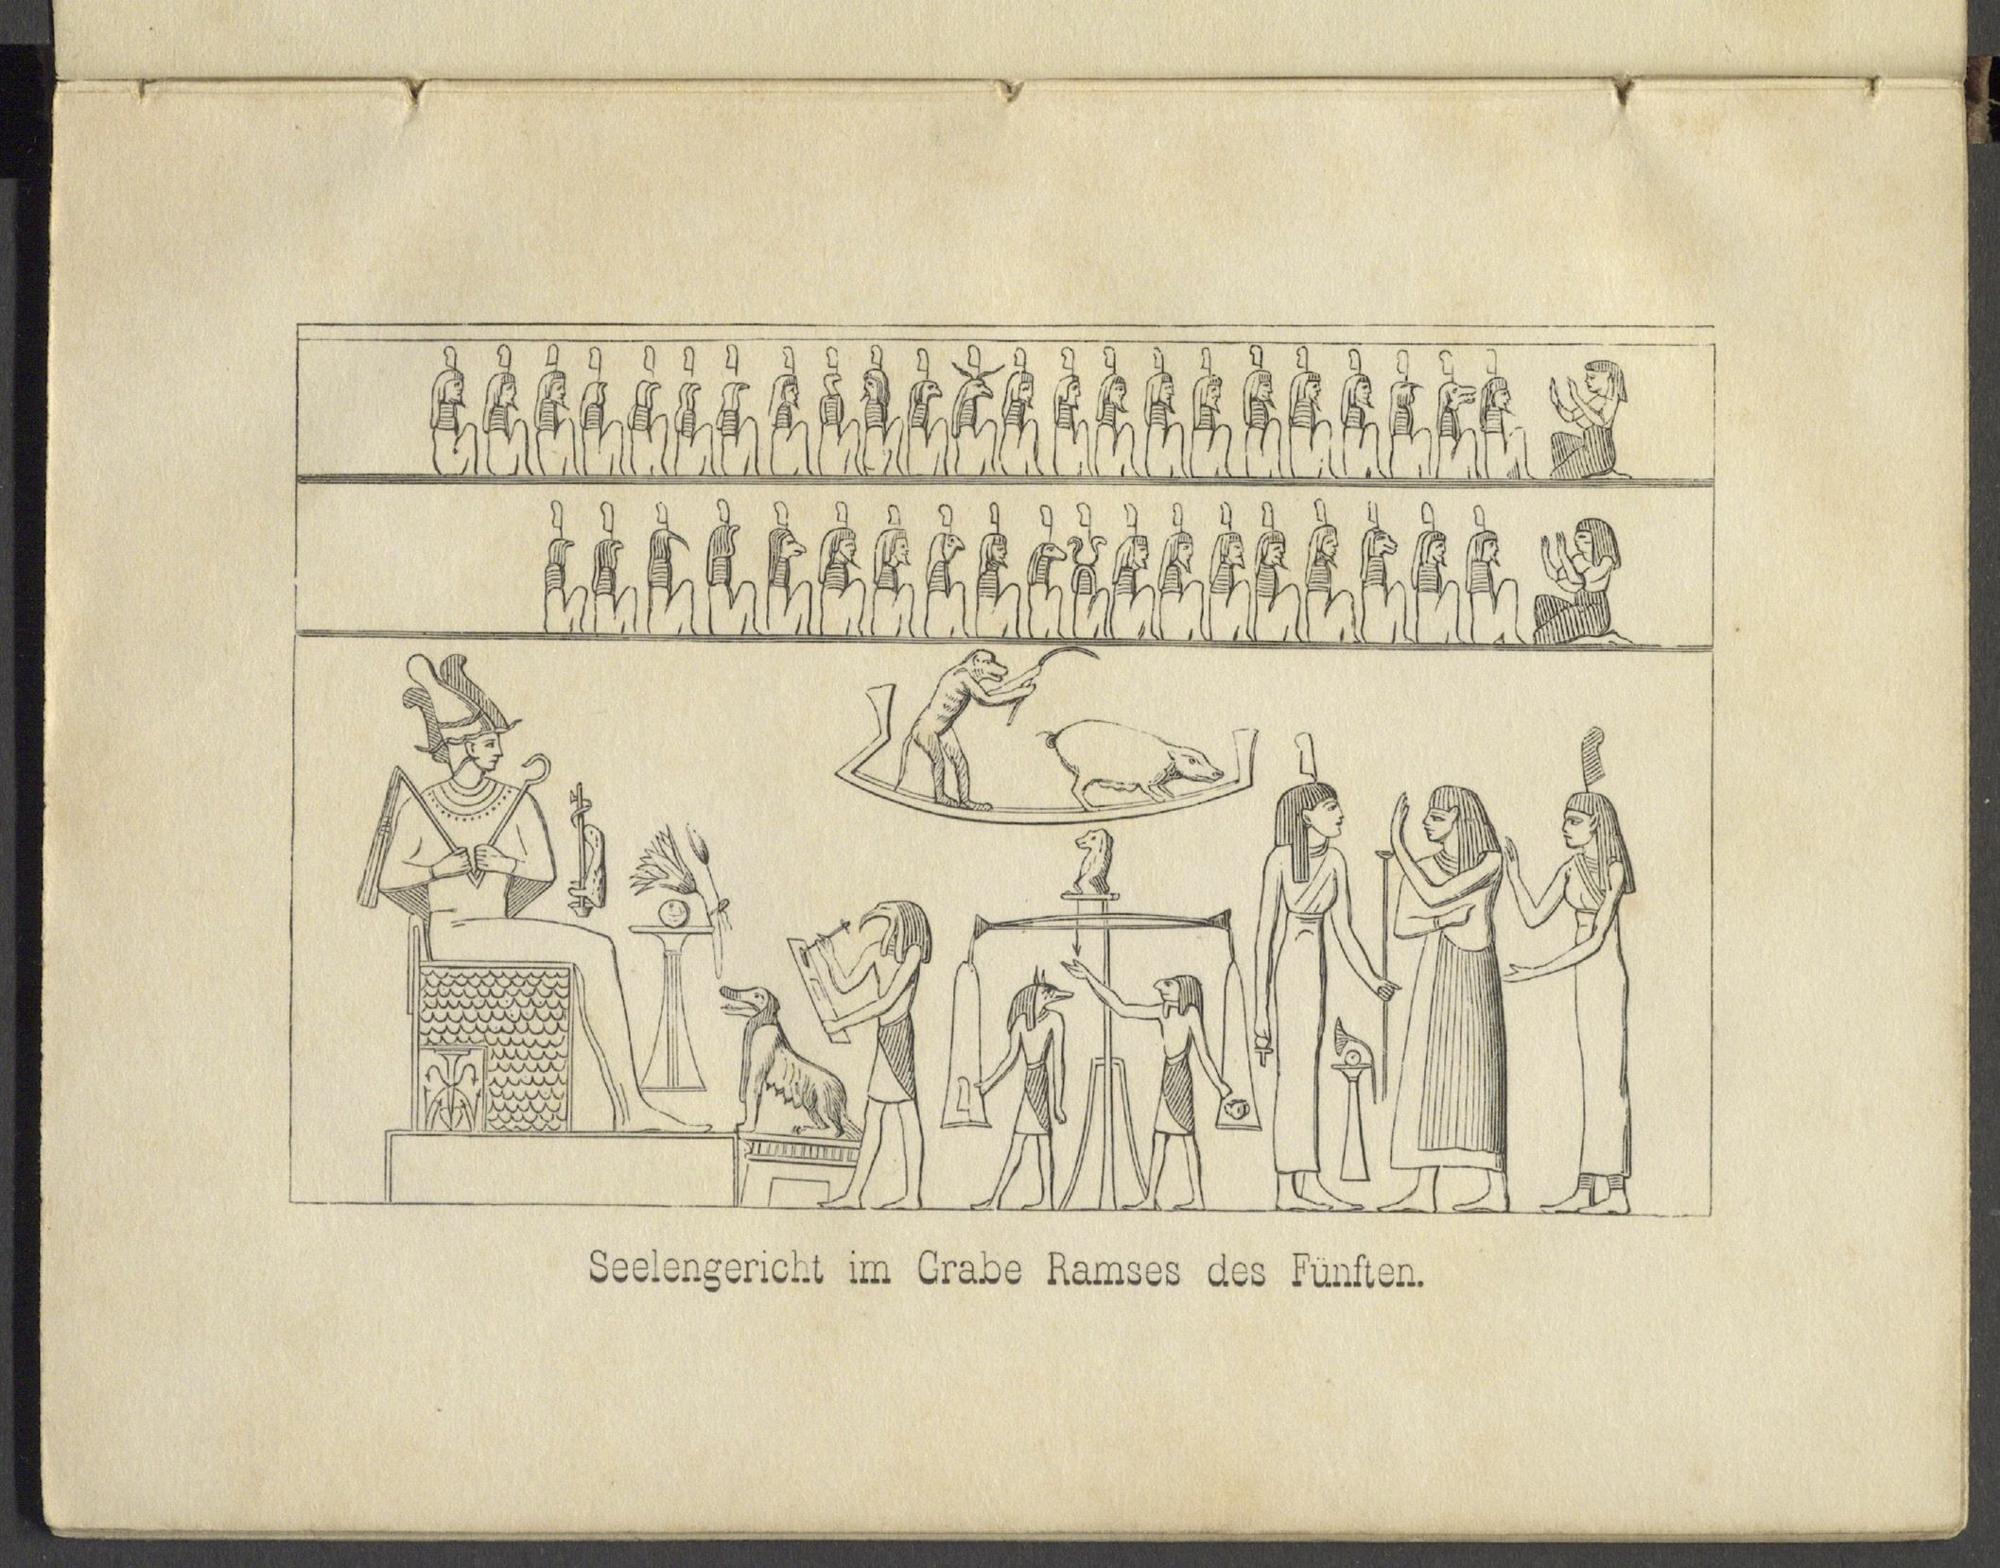 Seelengericht im Grabe Ramses des Fünften.